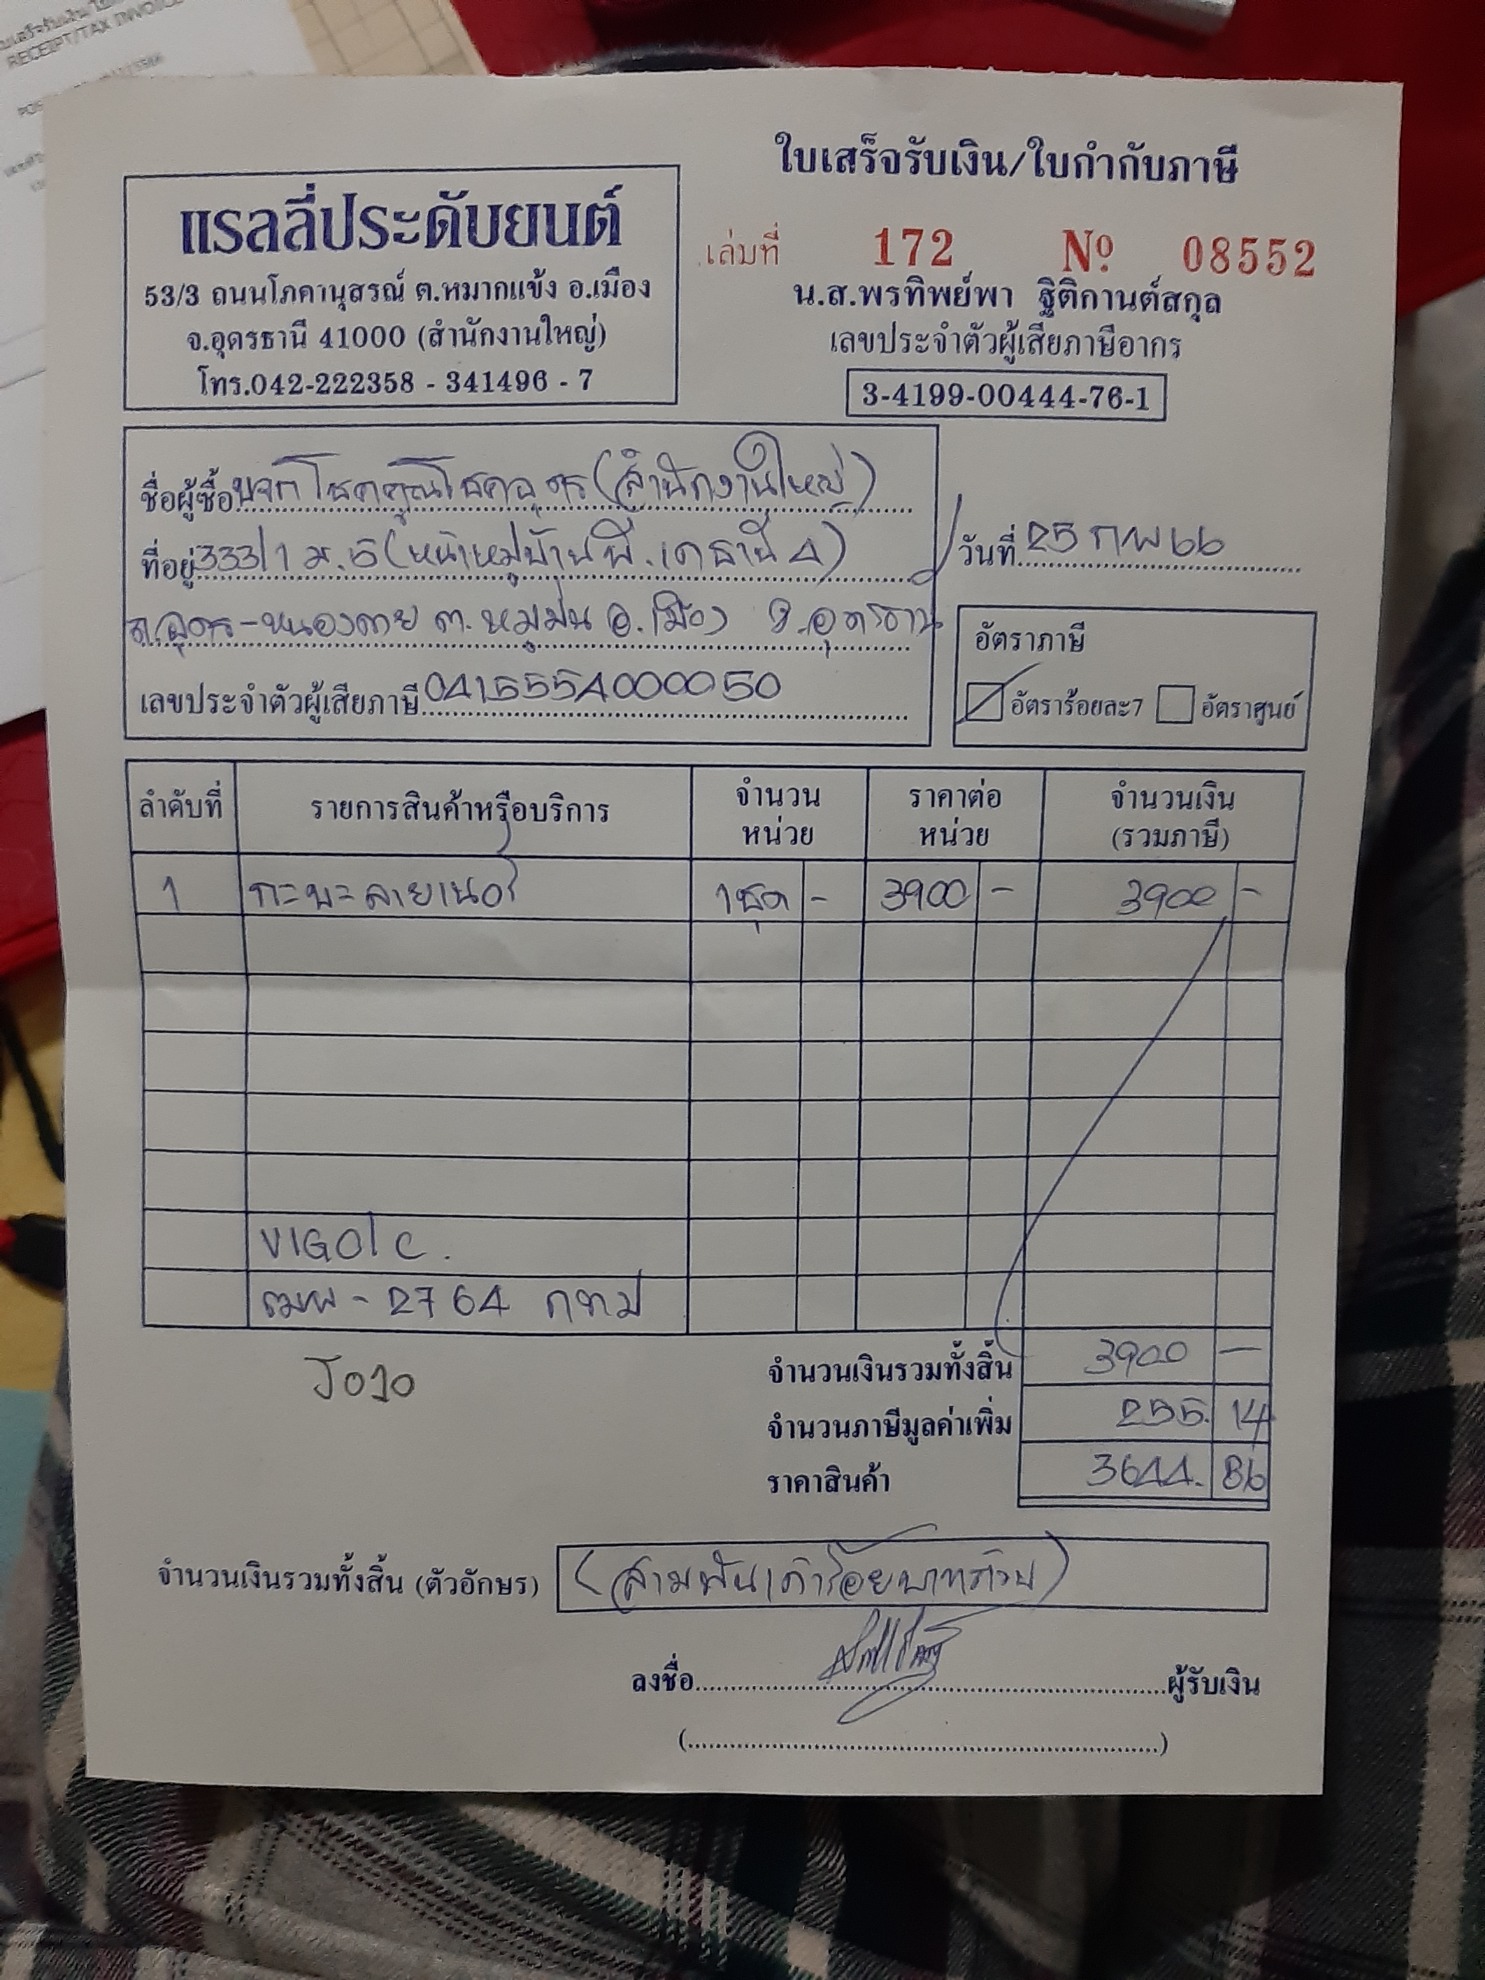 RECEIPT/TAX INVOICE
ใบเสร็จรับเงิน/ใบกำกับภาษี
แรลลี่ประดับยนต์
53/3 ถนนโภคานุสรณ์ ต.หมากแข้ง อ.เมือง
จ.อุดรธานี 41000 (สำนักงานใหญ่)
โทร.042-222358 - 341496 - 7
เล่มที่ 172 No. 08552
น.ส.พรทิพย์พา ฐิติกานต์สกุล
เลขประจำตัวผู้เสียภาษีอากร
3-4199-00444-76-1
ชื่อผู้ซื้อ บจก โชคคูณโชคอุดร (สำนักงานใหญ่)
ที่อยู่ 333/1 ม.5 (หน้าหมู่บ้านพี.เคธานี 4)
ถ.อุดร-หนองคาย ต.หมูม่น อ.เมือง จ.อุดรธานี
เลขประจำตัวผู้เสียภาษี 0415554000050
วันที่ 25 กพ 66
อัตราภาษี
อัตราร้อยละ7 อัตราศูนย์
ลำดับที่ รายการสินค้าหรือบริการ จำนวนหน่วย ราคาต่อหน่วย จำนวนเงิน (รวมภาษี)
1 กะบะลายเนอร์ 1ชุด - 3900 - 3900 -
VIGO/C.
2764 กทม
จำนวนเงินรวมทั้งสิ้น 3900 -
J010
จำนวนภาษีมูลค่าเพิ่ม 255.14
ราคาสินค้า 3644.86
จำนวนเงินรวมทั้งสิ้น (ตัวอักษร) (สามพันเก้าร้อยบาทถ้วน)
ลงชื่อ ผู้รับเงิน